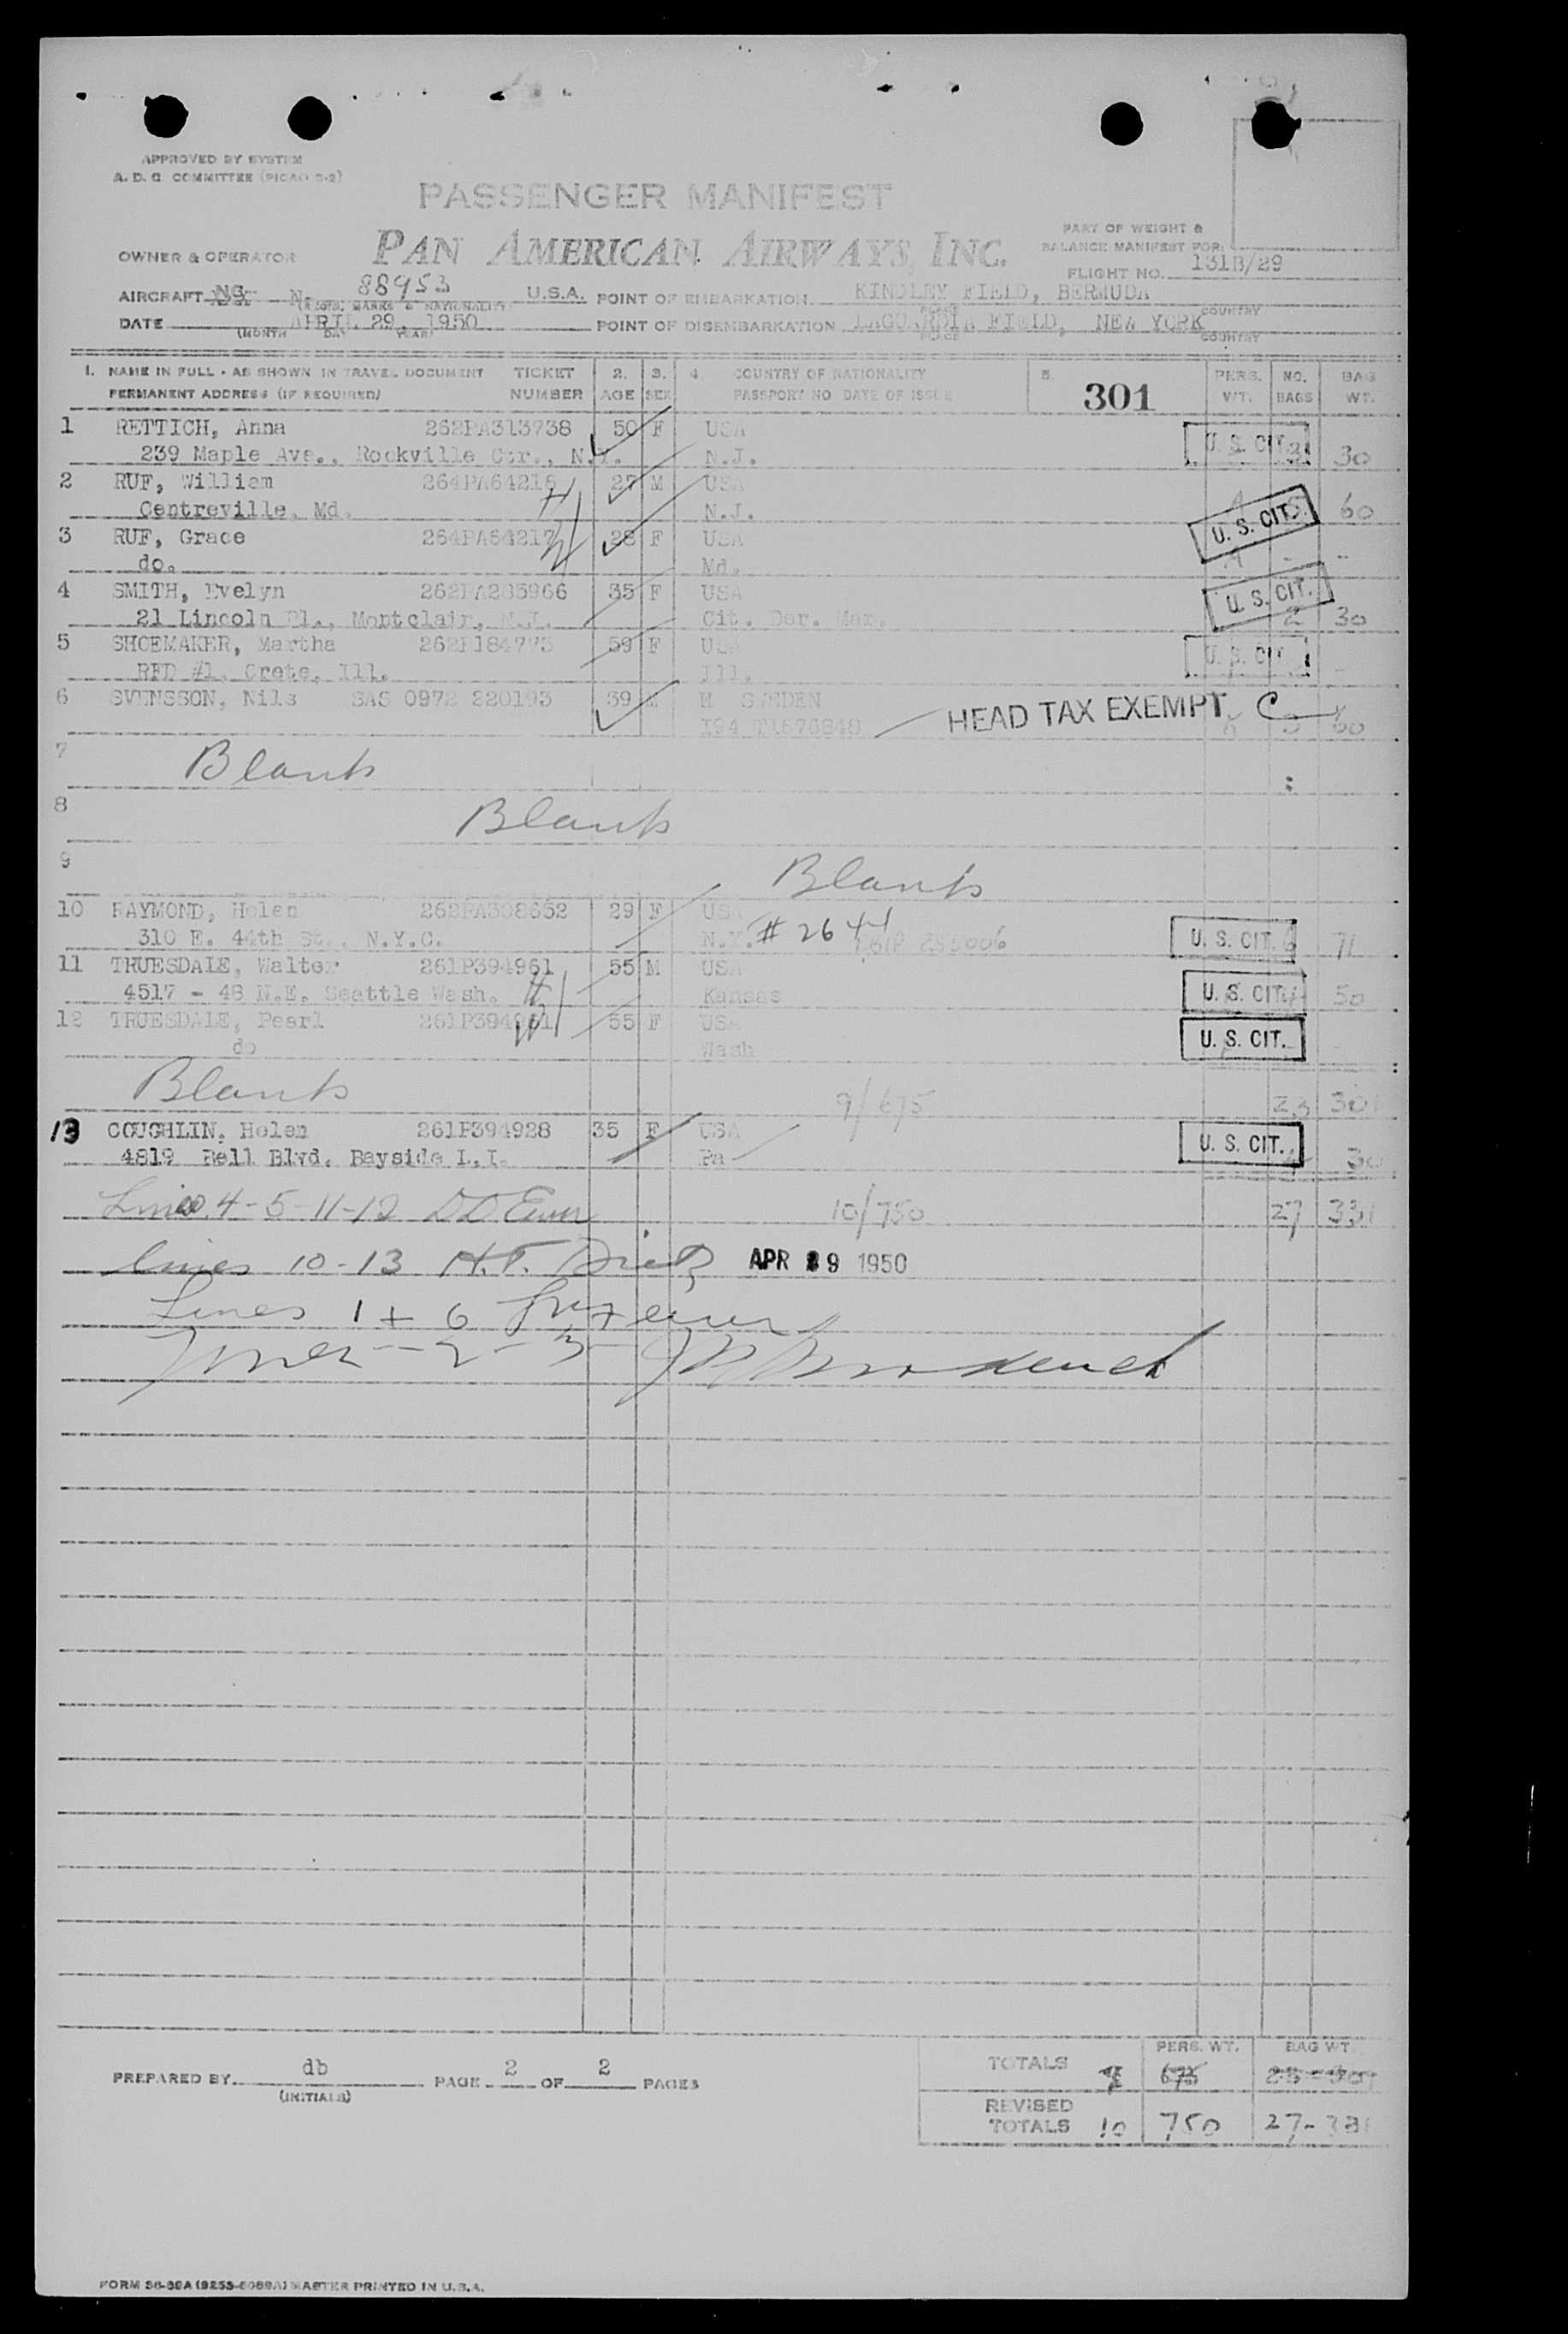 APPROVED BY SYSTEM
A. D. G. COMMITTEE (PICAO 2-2)
PASSENGER MANIFEST
OWNER & OPERATOR PAN AMERICAN AIRWAYS, INC.
PART OF WEIGHT &
BALANCE MANIFEST FOR:
FLIGHT NO. 131B/29
AIRCRAFT NC N. 88953 U.S.A. POINT OF EMBARKATION KINDLEY FIELD, BERMUDA
(REGIS. MARKS & NATIONALITY) COUNTRY
DATE APRIL 29, 1950 POINT OF DISEMBARKATION LAGUARDIA FIELD, NEW YORK
(MONTH DAY YEAR) PLACE COUNTRY
1. NAME IN FULL - AS SHOWN IN TRAVEL DOCUMENT TICKET 2. 3. 4. COUNTRY OF NATIONALITY 5. 301 PERS. NO. BAG
PERMANENT ADDRESS (IF REQUIRED) NUMBER AGE SEX PASSPORT NO DATE OF ISSUE WT. BAGS WT.
1 RETTICH, Anna 262PA313738 50 F USA U. S. CIT.
239 Maple Ave., Rockville Ctr., N.Y. N.J. 30
2 RUF, William 264PA64216 27 M USA
Centreville, Md. N.J. 60
U. S. CIT.
3 RUF, Grace 264PA64217 28 F USA
do. Md. -
4 SMITH, Evelyn 262PA285966 35 F USA U. S. CIT.
21 Lincoln Pl., Montclair, N.J. Cit. Der. Mar. 2 30
5 SHOEMAKER, Martha 262P184773 59 F USA U. S. CIT.
RFD #1, Crete, Ill. Ill.
6 SVENSSON, Nils SAS 0972 220193 39 M SWEDEN
I94 T1676848 HEAD TAX EXEMPT C 60
7 Blank
8 Blank
9 Blank
10 RAYMOND, Helen 262PA308652 29 F USA
310 E. 44th St., N.Y.C. N.Y. # 2644 U. S. CIT. 71
11 TRUESDALE, Walter 261P394961 55 M USA
4517 - 48 N.E. Seattle Wash. Kansas U. S. CIT. 50
12 TRUESDALE, Pearl 261P394961 55 F USA U. S. CIT.
do Wash
Blank 9/675 23 301
13 COUGHLIN, Helen 261P394928 35 F USA U. S. CIT.
4819 Bell Blvd. Bayside L.I. Pa 30
Lines 4-5-11-12 10/750 27 331
Lines 10-13 APR 29 1950
Lines 1 + 6
Lines - 2 - 3 -
TOTALS 9 675 23-301
PERS. WT. BAG WT.
PREPARED BY db PAGE 2 OF 2 PAGES
(INITIALS)
REVISED
TOTALS 10 750 27-331
FORM 36-39A (9253-6089A) MASTER PRINTED IN U.S.A.